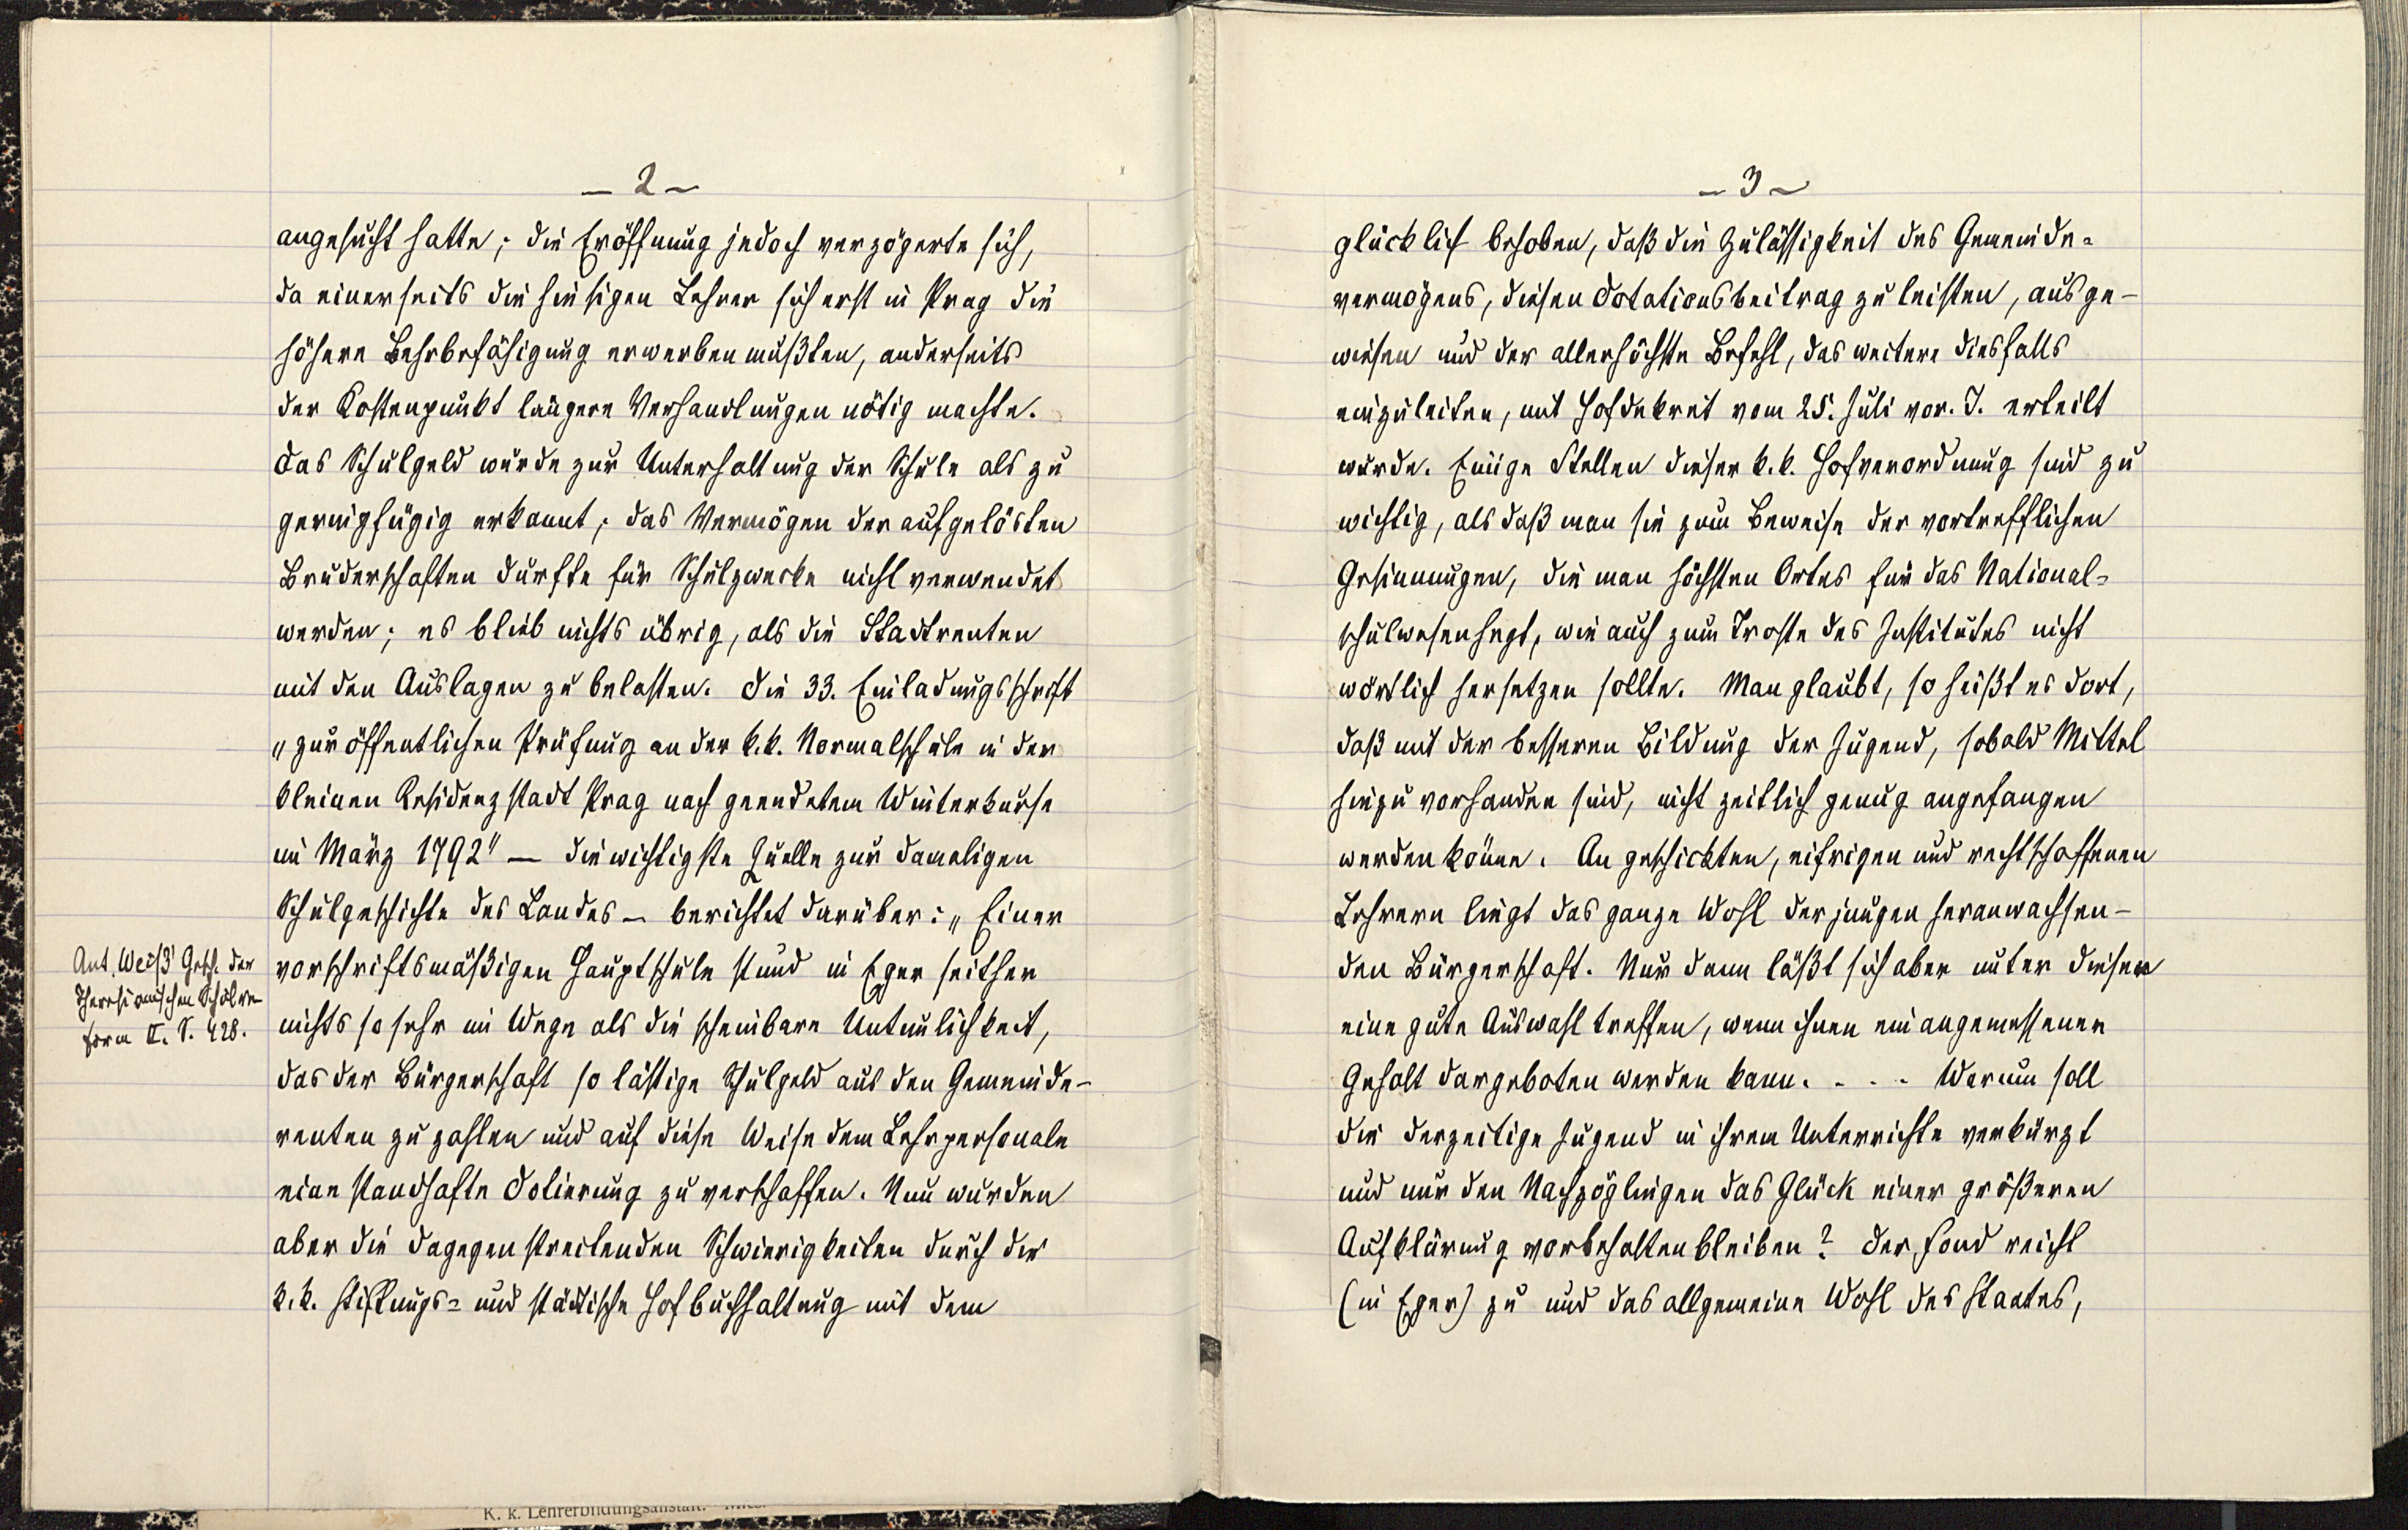 — 2 —
angesucht hatte; die Eröffnung jedoch verzögerte sich,
da einerseits die hiesigen Lehrer sich erst in Prag die
höhere Lehrbefähigung erwerben mußten, anderseits
der Kostenpunkt längere Verhandlungen nötig machte.
Das Schulgeld wurde zur Unterhaltung der Schule als zu
geringfügig erkannt; das Vermögen der aufgelösten
Bruderschaften durfte für Schulzwecke nicht verwendet
werden; es blieb nichts übrig, als die Stadtrenten
mit den Auslagen zu belasten. Die 33. Einladungsschrift
„zur öffentlichen Prüfung an der k.k. Normalschule in der
kleinen Residenzstadt Prag nach geendetem Winterkurse
im März 1792" — die wichtigste Quelle zur damaligen
Schulgeschichte des Landes — berichtet darüber: „Einer
vorschriftsmäßigen Hauptschule stund in Eger seither
nichts so sehr im Wege als die scheinbare Untunlichkeit,
das der Bürgerschaft so lästige Schulgeld aus den Gemeinde-
renten zu zahlen und auf diese Weise dem Lehrpersonale
eine standhafte Dotierung zu verschaffen. Nun wurden
aber die dagegen streitenden Schwierigkeiten durch die
k.k. Stiftungs- und städtische Hofbuchhaltung mit dem
Ant. Weiß' Gesch. der
Theresianischen Schulre-
form II. S. 428.
— 3 —
glücklich behoben, daß die Zulässigkeit des Gemeinde-
vermögens, diesen Dotationsbeitrag zu leisten, ausge-
wiesen und der allerhöchste Befehl, das weitere diesfalls
einzuleiten, mit Hofdekret vom 25. Juli vor. J. erteilt
wurde. Einige Stellen dieser k.k. Hofverordnung sind zu
wichtig, als daß man sie zum Beweise der vortrefflichen
Gesinnungen, die man höchsten Ortes für das National-
schulwesen hegt, wie auch zum Troste des Institutes nicht
wörtlich hersetzen sollte. Man glaubt, so heißt es dort,
daß mit der besseren Bildung der Jugend, sobald Mittel
hiezu vorhanden sind, nicht zeitlich genug angefangen
werden könne. An geschickten, eifrigen und rechtschaffenen
Lehrern liegt das ganze Wohl der jungen heranwachsen-
den Bürgerschaft. Nur dann läßt sich aber unter diesen
eine gute Auswahl treffen, wenn ihnen ein angemessener
Gehalt dargeboten werden kann. . . . Warum soll
die derzeitige Jugend in ihrem Unterrichte verkürzt
und nur den Nachzöglingen das Glück einer größeren
Aufklärung vorbehalten bleiben? Der Fond reicht
(in Eger) zu und das allgemeine Wohl des Staates,
K. k. Lehrerbildungsanstalt. Mies.